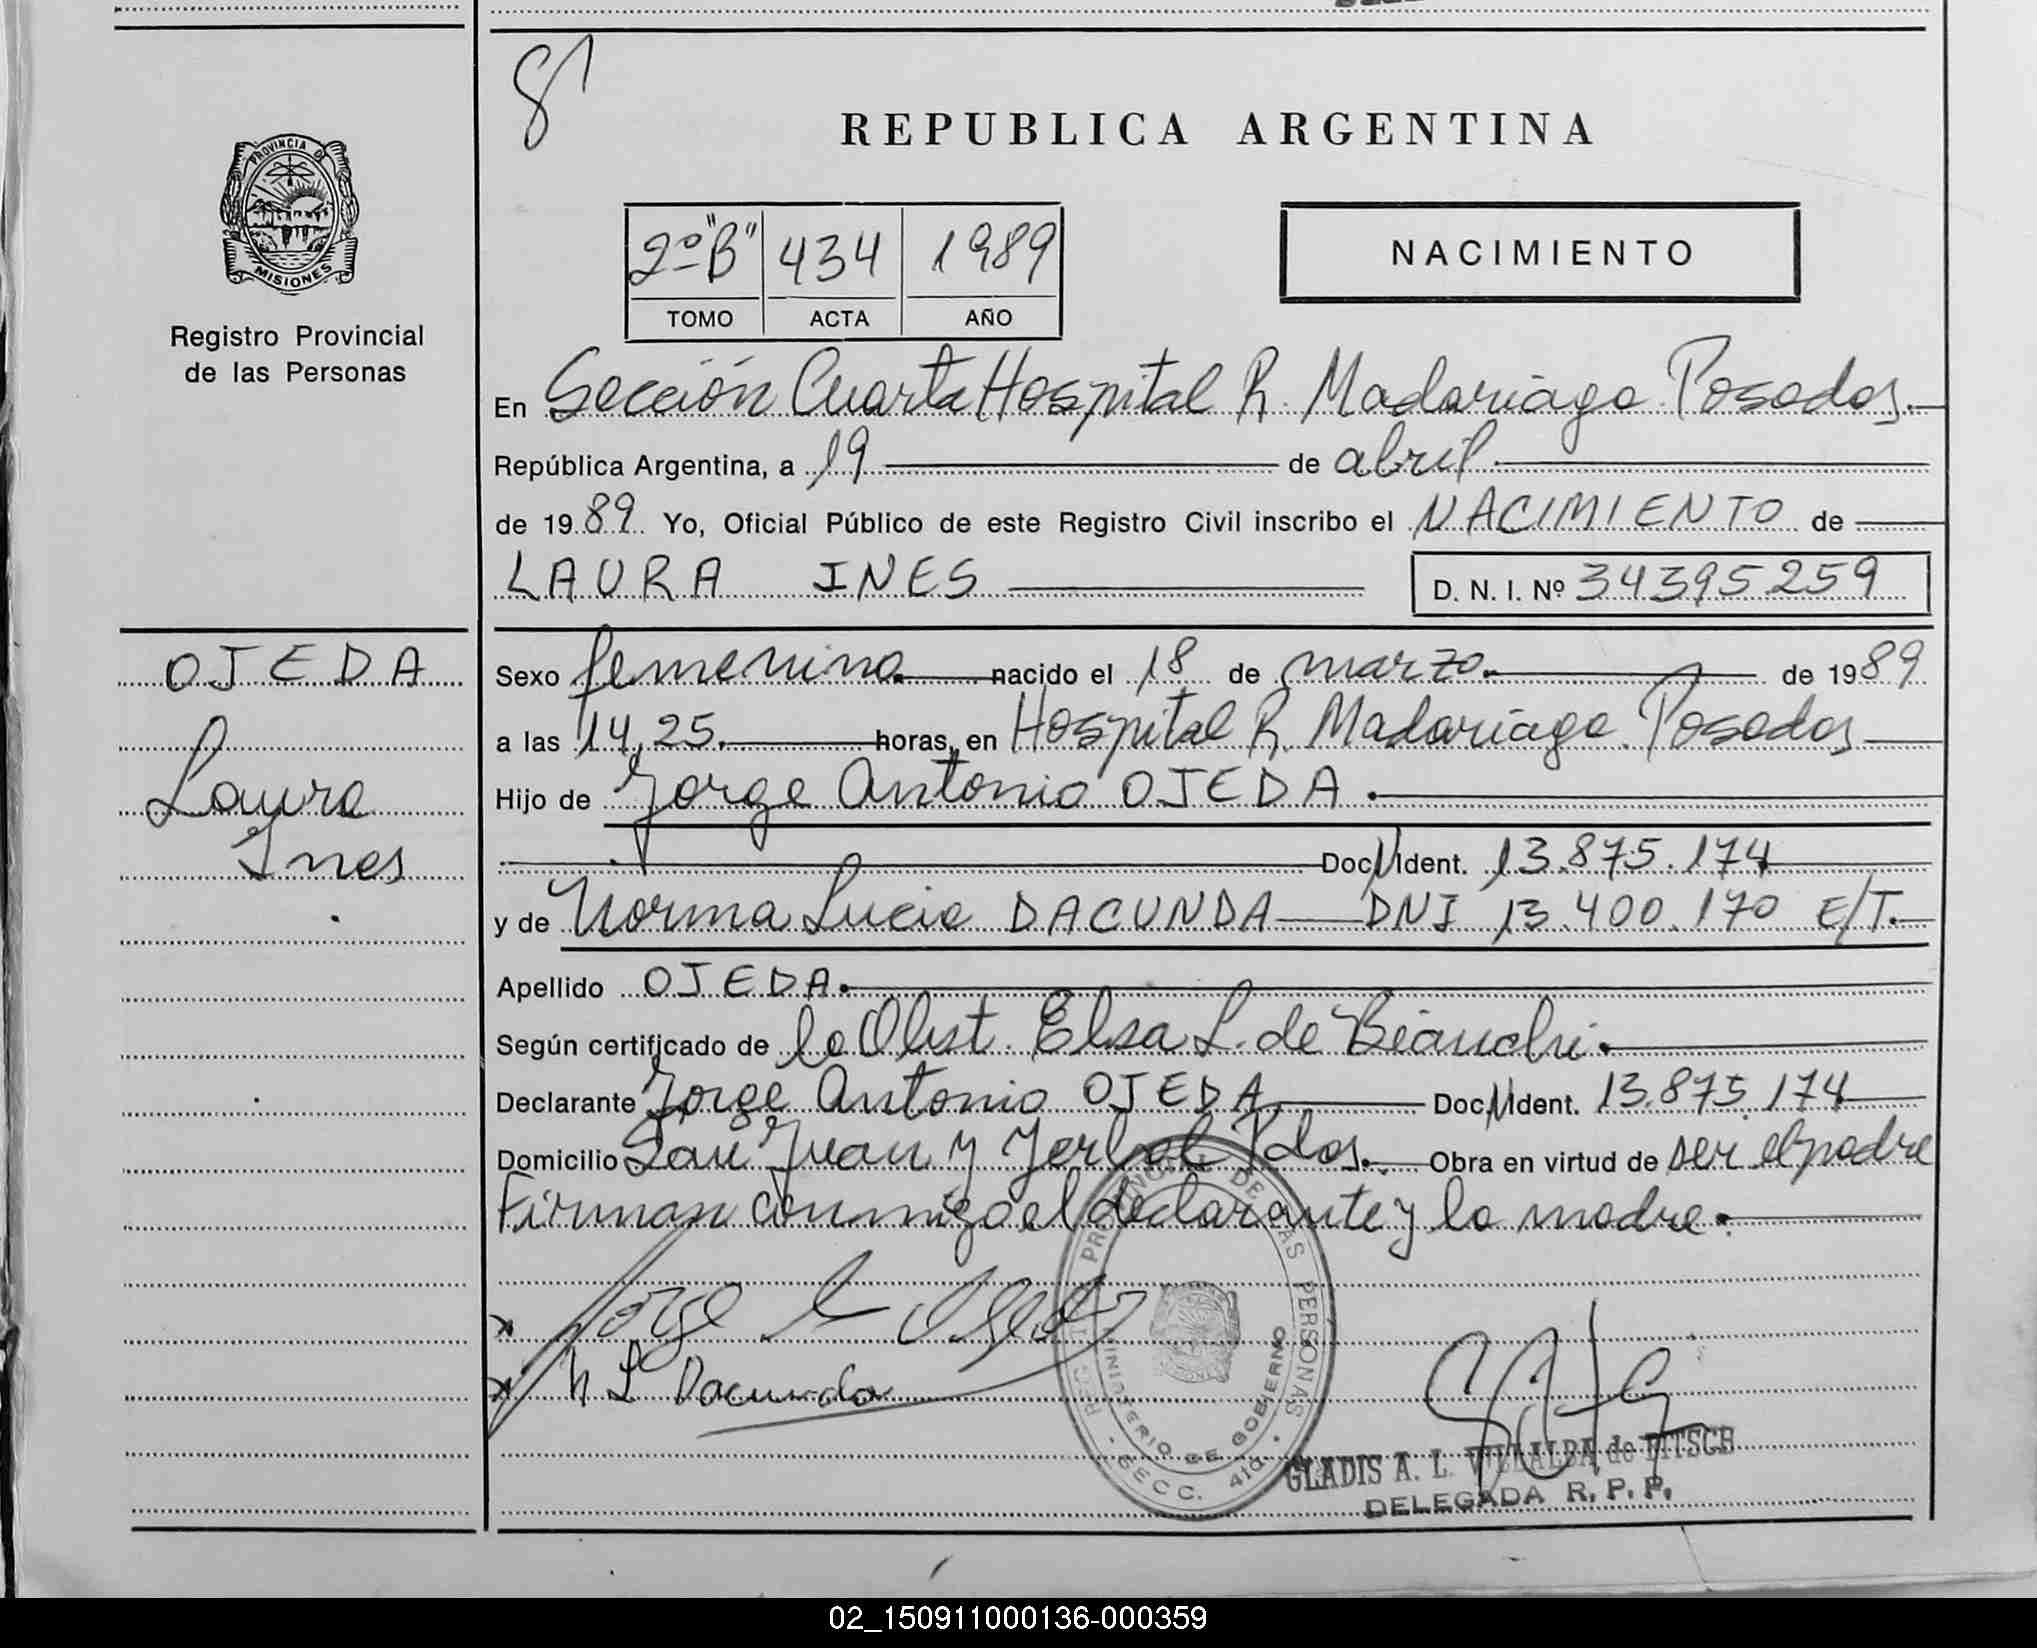 8
REPUBLICA ARGENTINA
PROVINCIA D
MISIONES
Registro Provincial
de las Personas
2º "B" 434 1989
TOMO ACTA AÑO
NACIMIENTO
En Sección Cuarta Hospital R. Madariaga Posadas.
República Argentina, a 19 de abril
de 1989 Yo, Oficial Público de este Registro Civil inscribo el NACIMIENTO de
LAURA INES D. N. I. Nº 34395259
OJEDA
Laura
Ines
Sexo femenino. nacido el 18 de marzo. de 1989
a las 14,25. horas, en Hospital R. Madariaga. Posadas
Hijo de Jorge Antonio OJEDA.
Doc. Ident. 13.875.174
y de Norma Lucia DACUNDA DNI 13.400.170 E/T.
Apellido OJEDA.
Según certificado de la Obst. Elsa L. de Bianchi.
Declarante Jorge Antonio OJEDA Doc. Ident. 13.875.174
Domicilio San Juan y Yerbal Pdas. Obra en virtud de ser el padre
Firman conmigo el declarante y la madre.
Jorge A. Ojeda
N L Dacunda
REG. PROVINCIAL DE LAS PERSONAS
MINISTERIO DE GOBIERNO
SECC. 41a.
GLADIS A. L. VILLALBA de
DELEGADA R. P. P.
02_150911000136-000359